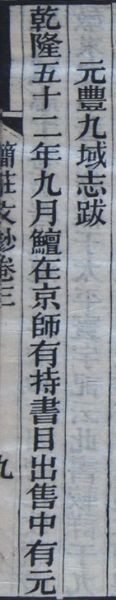 元豐九域志跋
乾隆五十二年九月鱣在京師有持書目出售中有元
簡莊文鈔卷三
九